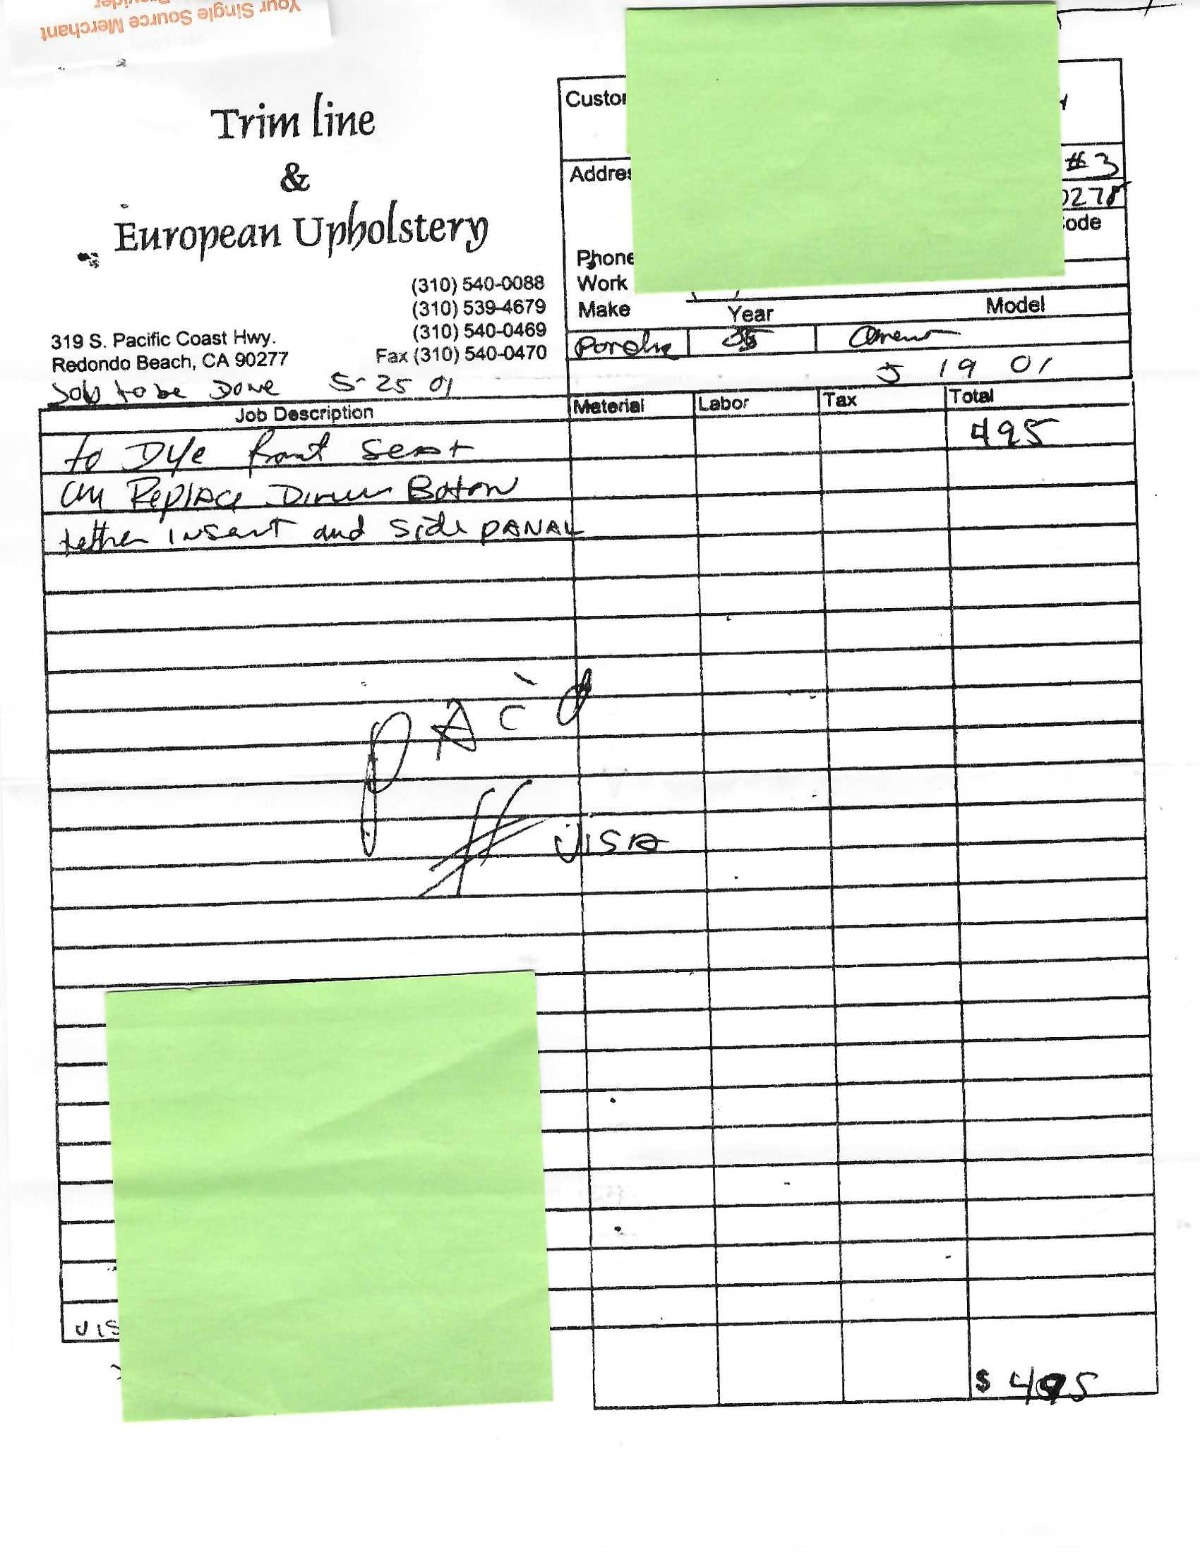 Your Single Source Merchant
Provider
Trim line
&
European Upholstery
(310) 540-0088
(310) 539-4679
319 S. Pacific Coast Hwy. (310) 540-0469
Redondo Beach, CA 90277 Fax (310) 540-0470
Custo
Addres #3
0278
ode
Phone
Work
Make Year Model
Porshe
5 19 01
Job to be Done 5-25 01
Job Description Material Labor Tax Total
to Dye front Seat 495
RePlAce Boton
insert and Side PANAL
PAid
VISA
VIS
$ 495